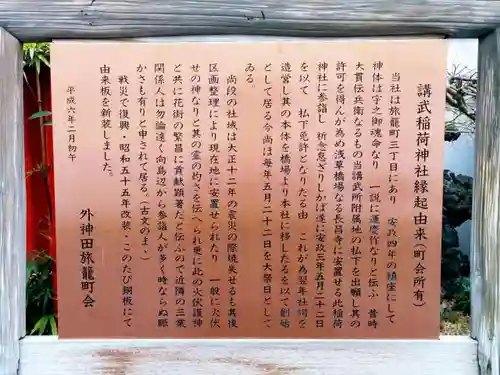 講武稲荷神社縁起由来(町会所有)
当社は旅籠町三丁目にあり 安政四年の鎮座にして
神体は宇之御魂命なり 一説に運慶作なりと伝ふ 昔時
大貫伝兵衛なるもの当講武所附属地の払下を出願し其の
許可を得んが為め浅草橋場なる長昌寺に安置せる此稲荷
神社に参詣し 祈念怠さりしかば遂に安政三年五月二十二日
を以て 払下免許となりたる由 これが為翌年社祠を
造営し其の本体を橋場より本社に移したるを以て創始
として居る今尚ほ毎年五月二十二日を大祭日として
ゐる。
尚段の社域は大正十二年の震災の際焼失せるも其後
区画整理により現在地に安置せられたり 一般に火伏
せの神なりと其の霊の灼さを伝へられ更に此の火伏護神
と共に花街の繁昌に貢献顕著だと伝ふので近隣の三業
関係人は勿論遠く向島辺から参詣人が多く時ならぬ賑
かさも有りと申されて居る。(古文のまゝ)
戦災で復興・昭和五十五年改装・このたび銅板にて
由来板を新装しました。
平成六年二月初午
外神田旅籠町会